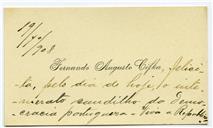 19/
10/
908
Fernando Augusto Cifka, felici-
ta, pelo dia de hoje, o inte-
merato caudilho da demo-
cracia portuguesa - Viva a Republica